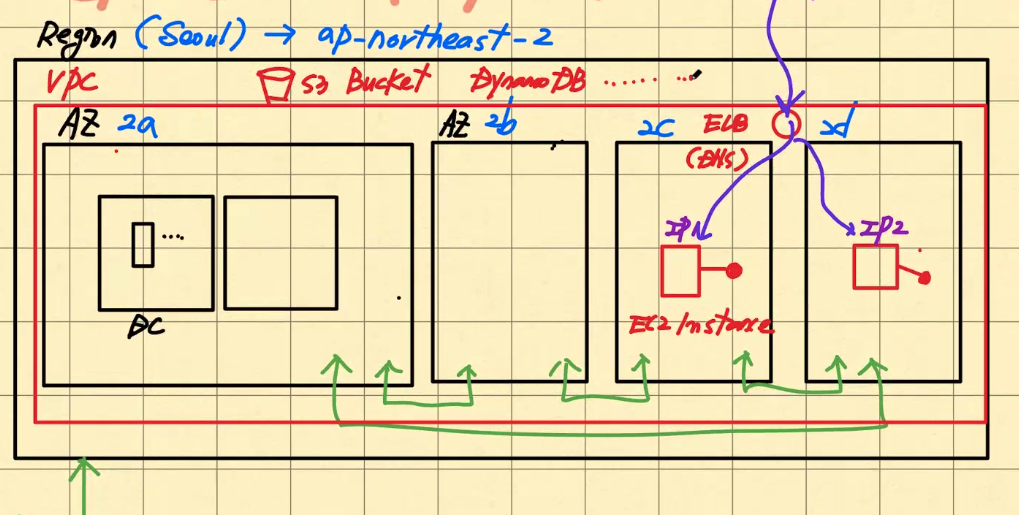 Region (Seoul) → ap-northeast-2
VPC S3 Bucket DynamoDB ........
AZ 2a AZ 2b 2c ELB 2d
(DNS)
IP1 IP2
....
DC
EC2 Instance